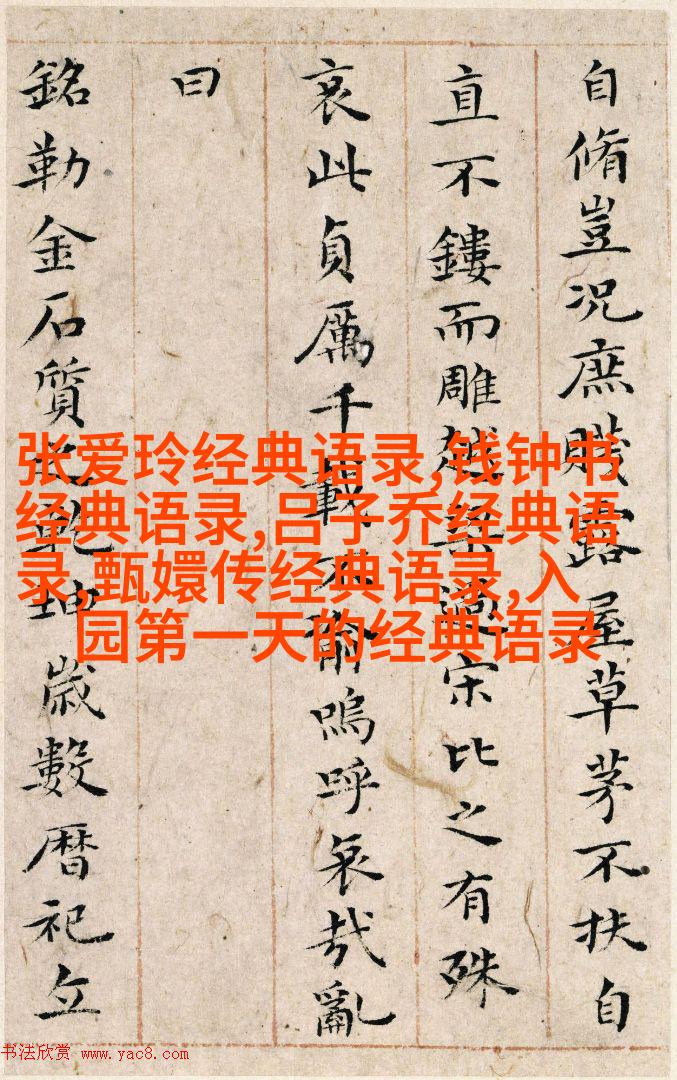 自脩豈況庶賤露屋草茅不扶自
直不鏤而雕越梁過宋比之有殊
哀此貞厲千載不渝嗚呼哀哉亂
曰
銘勒金石質之乾坤歲數曆祀立
张爱玲经典语录,钱钟书
经典语录,吕子乔经典语
录,甄嬛传经典语录,入
园第一天的经典语录
书法欣赏 www.yac8.com